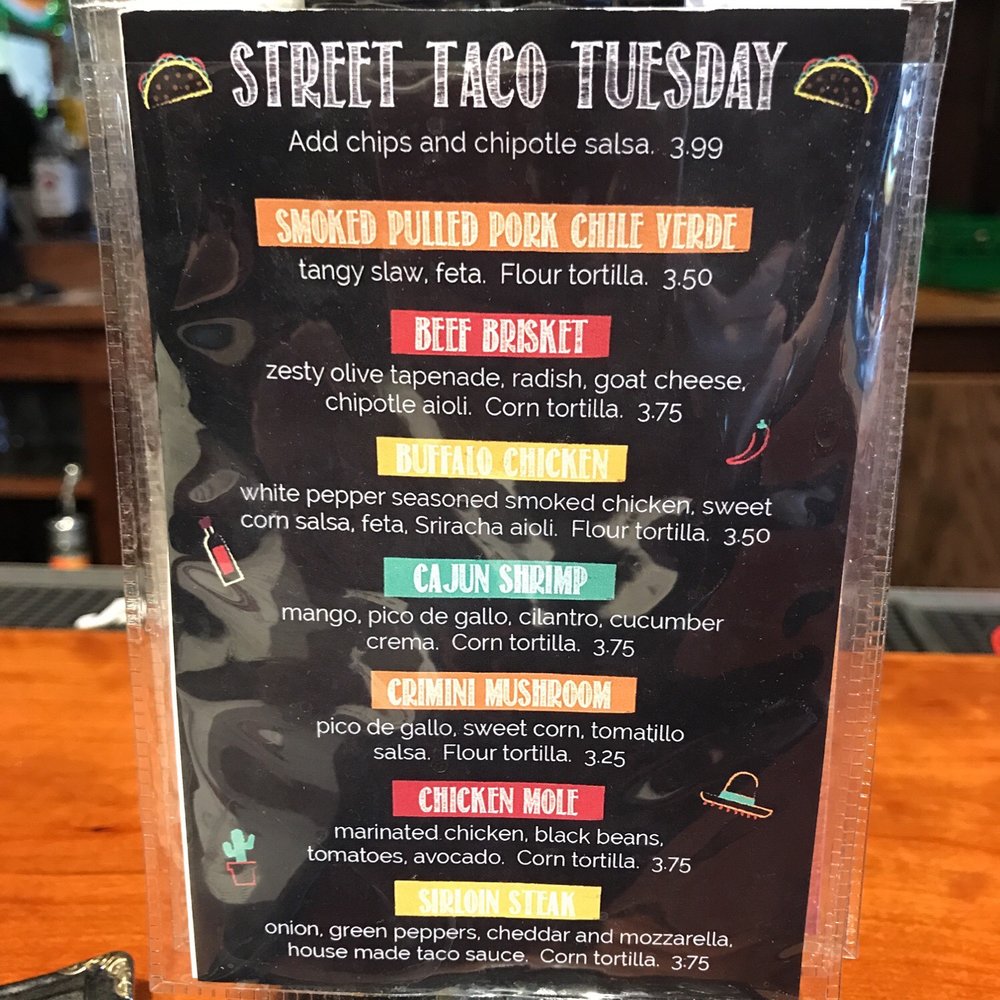 STREET TACO TUESDAY
Add chips and chipotle salsa. 3.99
SMOKED PULLED PORK CHILE VERDE
tangy slaw, feta. Flour tortilla. 3.50
BEEF BRISKET
zesty olive tapenade, radish, goat cheese,
chipotle aioli. Corn tortilla. 3.75
BUFFALO CHICKEN
white pepper seasoned smoked chicken, sweet
corn salsa, feta, Sriracha aioli. Flour tortilla. 3.50
CAJUN SHRIMP
mango, pico de gallo, cilantro, cucumber
crema. Corn tortilla. 3.75
CRIMINI MUSHROOM
pico de gallo, sweet corn, tomatillo
salsa. Flour tortilla. 3.25
CHICKEN MOLE
marinated chicken, black beans,
tomatoes, avocado. Corn tortilla. 3.75
SIRLOIN STEAK
onion, green peppers, cheddar and mozzarella,
house made taco sauce. Corn tortilla. 3.75